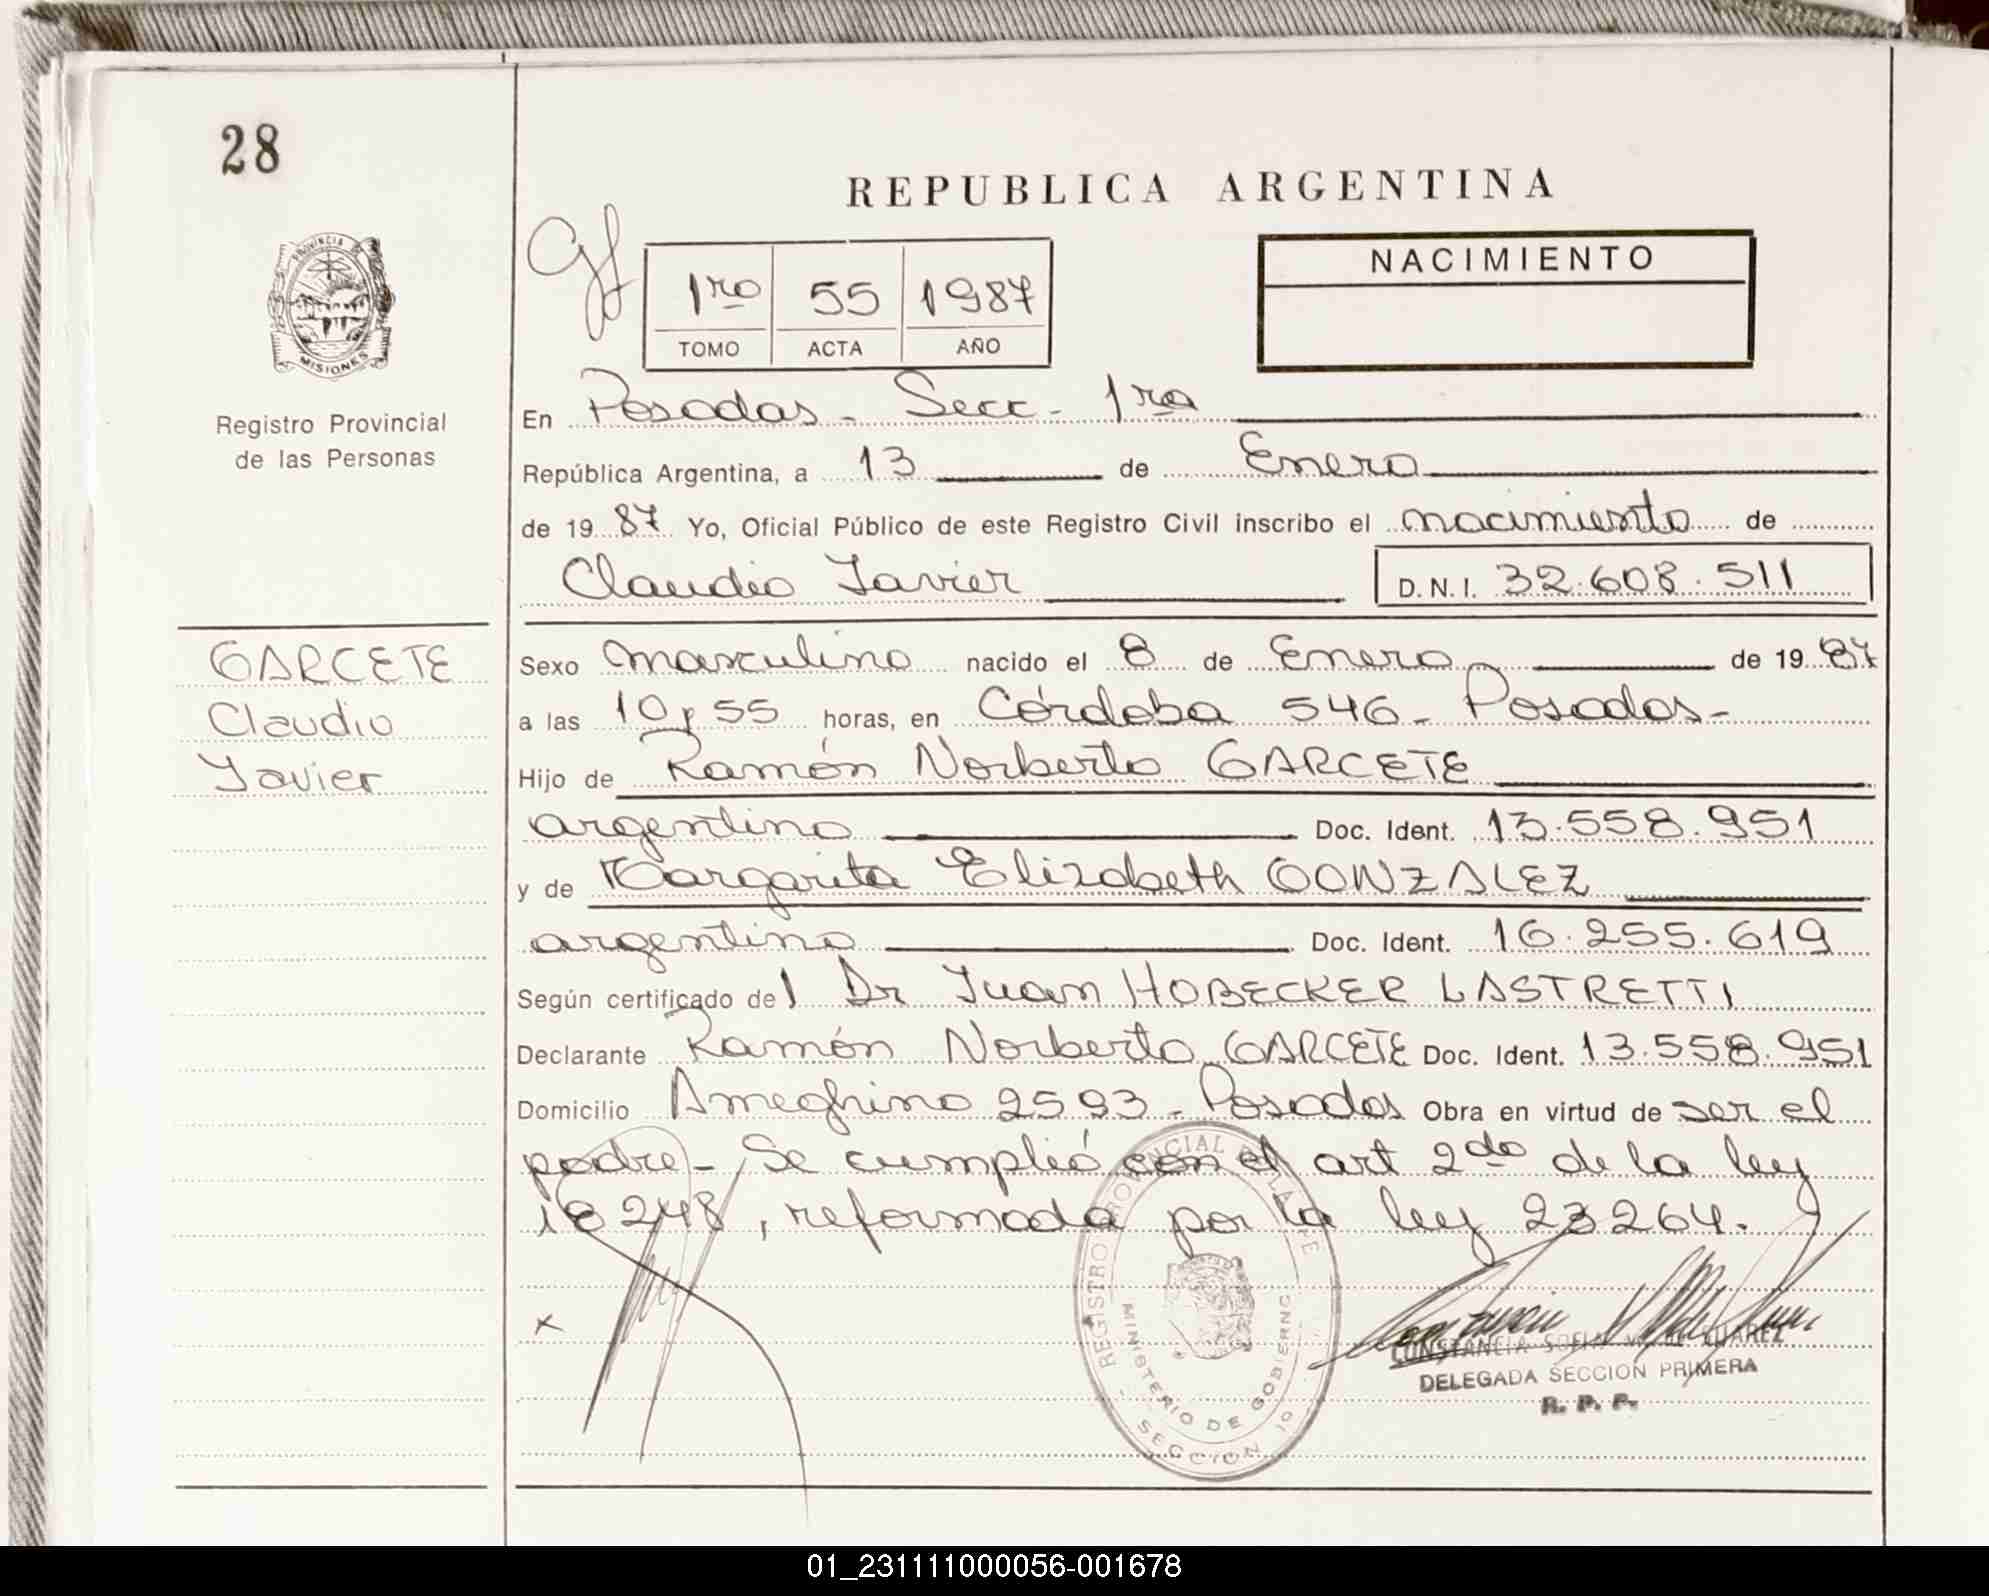 28
REPUBLICA ARGENTINA
PROVINCIA DE
MISIONES
1ro 55 1987
TOMO ACTA AÑO
NACIMIENTO
Registro Provincial
de las Personas
En Posadas - Secc - 1ra
República Argentina, a 13 de Enero
de 1987 Yo, Oficial Público de este Registro Civil inscribo el nacimiento de
Claudio Javier D.N.I. 32.608.511
GARCETE
Claudio
Javier
Sexo masculino nacido el 8 de Enero de 1987
a las 10,55 horas, en Córdoba 546 - Posadas -
Hijo de Ramón Norberto GARCETE
argentino Doc. Ident. 13.558.951
y de Margarita Elizabeth GONZALEZ
argentina Doc. Ident. 16.255.619
Según certificado del Dr Juan HOBECKER LASTRETTI
Declarante Ramón Norberto GARCETE Doc. Ident. 13.558.951
Domicilio Ameghino 2593 - Posadas Obra en virtud de ser el
padre - Se cumplió con el art 2do de la ley
18248, reformada por la ley 23264.
x
REGISTRO PROVINCIAL DE LAS
MINISTERIO DE GOBIERNO
- SECCION 1o -
CONSTANCIA SOFIA SUAREZ
DELEGADA SECCION PRIMERA
R. P. P.
01_231111000056-001678